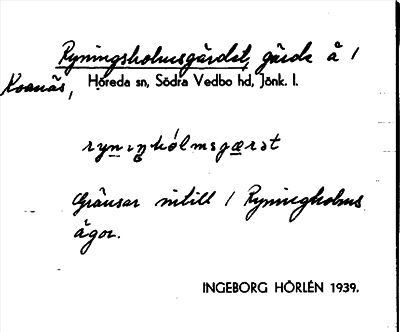 Ryningsholmsgärdet, gärde å 1
Kvarnäs, Höreda sn, Södra Vedbo hd, Jönk. l.
Gränsar intill 1 Ryningholms
ägor.
INGEBORG HÖRLÉN 1939.